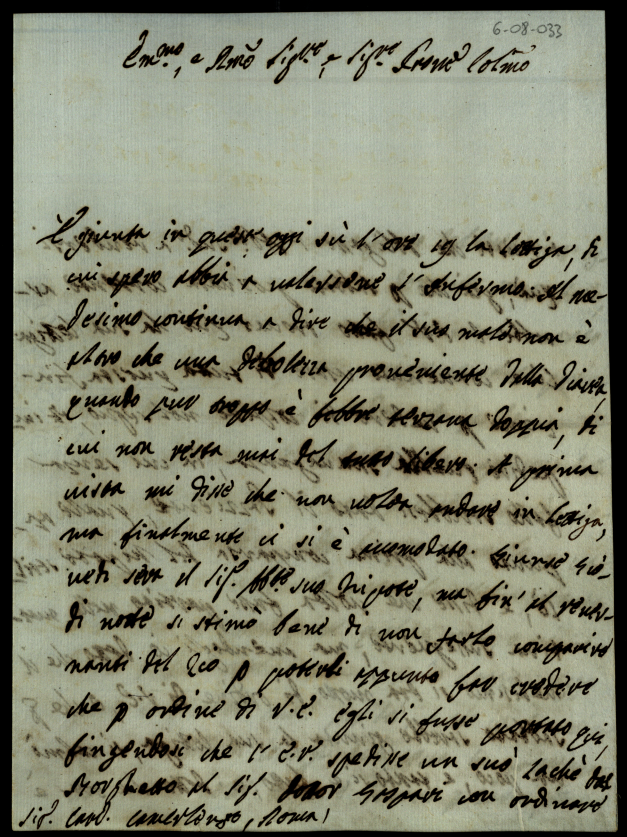 6-08-033
Em.mo, e Rmo Sig.re, e Sig.re Prone Colmo
È giunta in quest'oggi sù l'ore 19 la lettiga, di
cui spero abbia a valersene l'Infermo. Il me-
desimo continua a dire che il suo male non è
altro che una debolezza proveniente dalla Dieta,
quando pur troppo è febbre terzana doppia, di
cui non resta mai del tutto libero. A prima
vista mi disse che non voleva andare in lettiga,
ma finalmente vi si è accomodato. Giunse Gio-
vedì sera il Sig.r Abbe suo Nipote, ma fin' al
di notte si stimò bene di non farlo comparire
nanti del Zio p poterli appunto far credere
che p ordine di V.E. egli si fusse portato quì,
fingendosi che l'E.V. spedisse un suo Lachè dal
Borghetto al Sig.r Dottor Gaspari con ordinare
Sig.r Card. Camerlengo, Roma